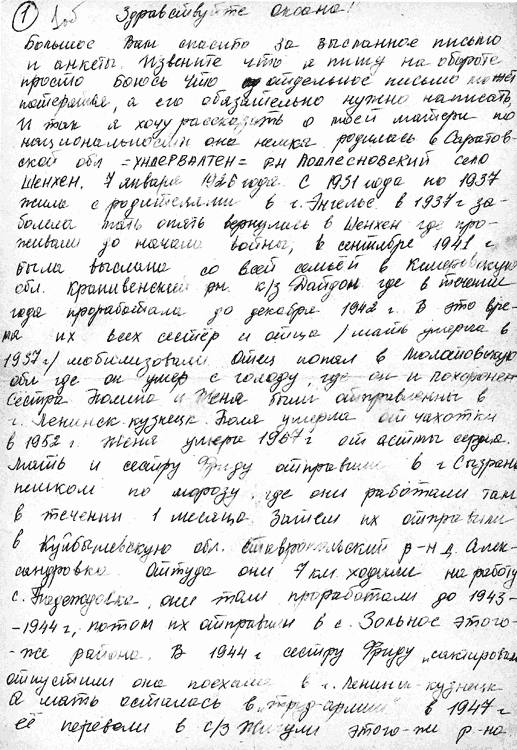 1 Здравствуйте Оксана!
Большое Вам спасибо за высланное письмо
и анкеты. Извените что я пишу на обороте
просто боюсь что отдельное письмо может
потеряться, а его обязательно нужно написать,
И так я хочу рассказать о моей матери по
национальности она немка родилась в Саратов-
ской обл =УНДЕРВАЛТЕН= р-н Подлесновский село
Шенхен. 7 января 1926 года. С 1931 года по 1937
жила с родителями в г. Энгельсе в 1937 г за-
болела мать опять вернулись в Шенхен где про-
живали до начала войны, в сентябре 1941 г.
была выслана со всей семьёй в Кемеровскую
обл. Крапивенский рн. к/з Дайдон где в течении
года проработала до декабря 1942 г. В это вре-
мя их всех сестёр и отца /мать умерла в
1937г/ мобилизовали Отец попал в Молотовскую
обл где он умер с голоду, где он и похоронен
Сестра Полина и Женя были отправленны в
г. Ленинск-кузнецк. Поля умерла от чахотки
в 1952 г. Женя умерла 1967 г от астмы сердца.
Мать и сестру Фриду отправили в г Сызрань
пешком по морозу, где они работали там
в течении 1 месяца. Затем их отправили
в Куйбышевскую обл. Ставропольский р-н д. Алек-
сандровка. Оттуда они 7 км. ходили на работу
с. Надеждовка, они там проработали до 1943-
-1944 г, потом их отправили в с. Зольное этого-
-же района. В 1944 г сестру Фриду „сактировали
отпустили она поехала в г. Ленинск-кузнецк
а мать осталась в „труд-армии" в 1947 г
её перевели в с/з Жигули этого-же р-на